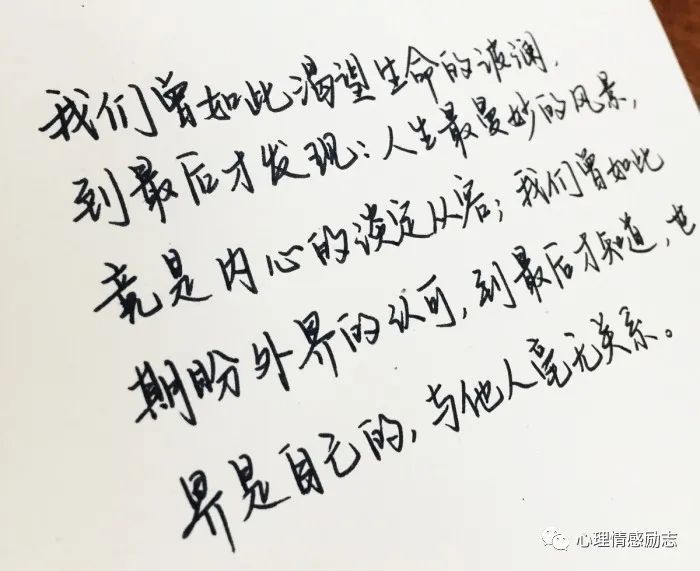 我们曾如此渴望生命的波澜，
到最后才发现：人生最曼妙的风景，
竟是内心的淡定从容；我们曾如此
期盼外界的认可，到最后才知道，世
界是自己的，与他人毫无关系。
心理情感励志